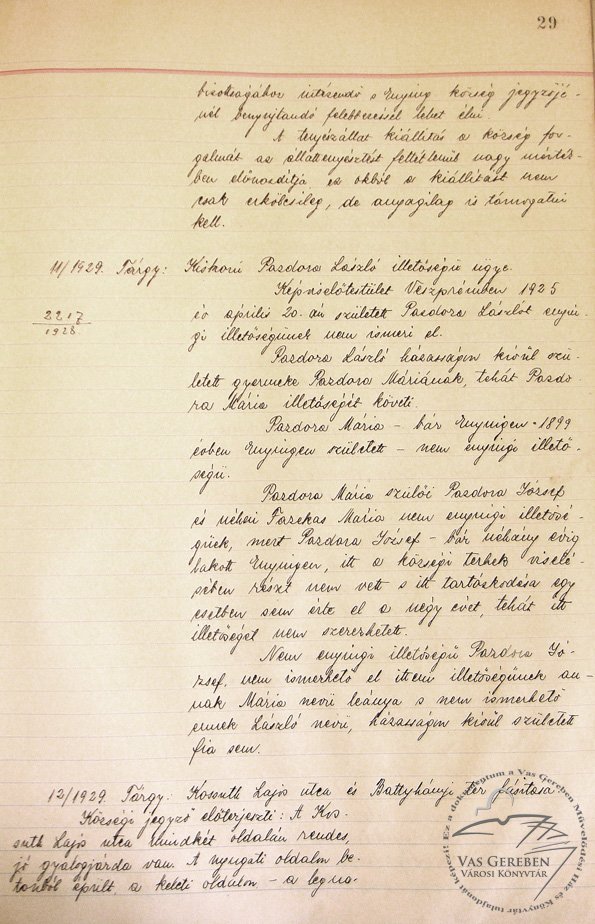 29
bizottságához intézendő s Enying község jegyzőjé-
nél benyujtandó felebbezéssel lehet élni.
A tenyészállat kiállítás a község for-
galmát az állattenyésztést feltétlenül nagy mérték-
ben előmozdítja, ez okból a kiállítást nem
csak erkölcsileg, de anyagilag is támogatni
kell.
11/1929. Tárgy: Kiskorú Pazdora László illetőségi ügye.
2217
1928.
Képviselőtestület Veszprémben 1925
év április 20.-án született Pazdora Lászlót enyin-
gi illetőségünek nem ismeri el.
Pazdora László házasságon kívül szü-
letett gyermeke Pazdora Máriának, tehát Pazdo-
ra Mária illetőségét követi.
Pazdora Mária – bár Enyingen 1899
évben Enyingen született – nem enyingi illető-
ségü.
Pazdora Mária szülői Pazdora József
és néhai Fazekas Mária nem enyingi illetősé-
güek, mert Pazdora József – bár néhány évig
lakott Enyingen, itt a községi terhek viselé-
sében részt nem vett s itt tartózkodása egy
esetben sem érte el a négy évet, tehát itt
illetőséget nem szerezhetett.
Nem enyingi illetőségü Pazdora Jó-
zsef, nem ismerhető el itteni illetőségünek an-
nak Mária nevü leánya s nem ismerhető
ennek László nevü, házasságon kívül született
fia sem.
12/1929. Tárgy: Kossuth Lajos utca és Batthyányi tér fásítása
Községi jegyző előterjeszti: A Kos-
suth Lajos utca mindkét oldalán rendes,
jó gyalogjárda van. A nyugati oldalon be-
tonból épült, a keleti oldalon – a legna-
Ez a dokumentum a Vas Gereben Művelődési Ház és Könyvtár tulajdonát képezi!
VAS GEREBEN
VÁROSI KÖNYVTÁR